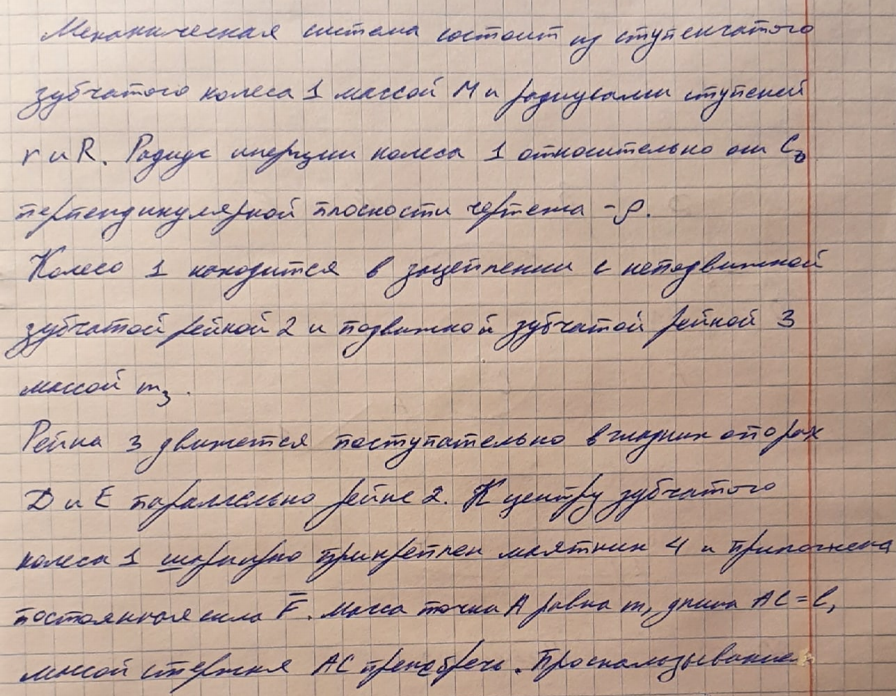 Механическая система состоит из ступенчатого
зубчатого колеса 1 массой M и радиусами ступеней
r и R. Радиус инерции колеса 1 относительно оси Cz
перпендикулярной плоскости чертежа - ρ.
Колесо 1 находится в зацеплении с неподвижной
зубчатой рейкой 2 и подвижной зубчатой рейкой 3
массой m3.
Рейка 3 движется поступательно в гладких опорах
D и E параллельно рейке 2. К центру зубчатого
колеса 1 шарнирно прикреплен маятник 4 и приложена
постоянная сила F̅. Масса точки A равна m, длина AC = l,
массой стержня AC пренебречь. Проскальзывание